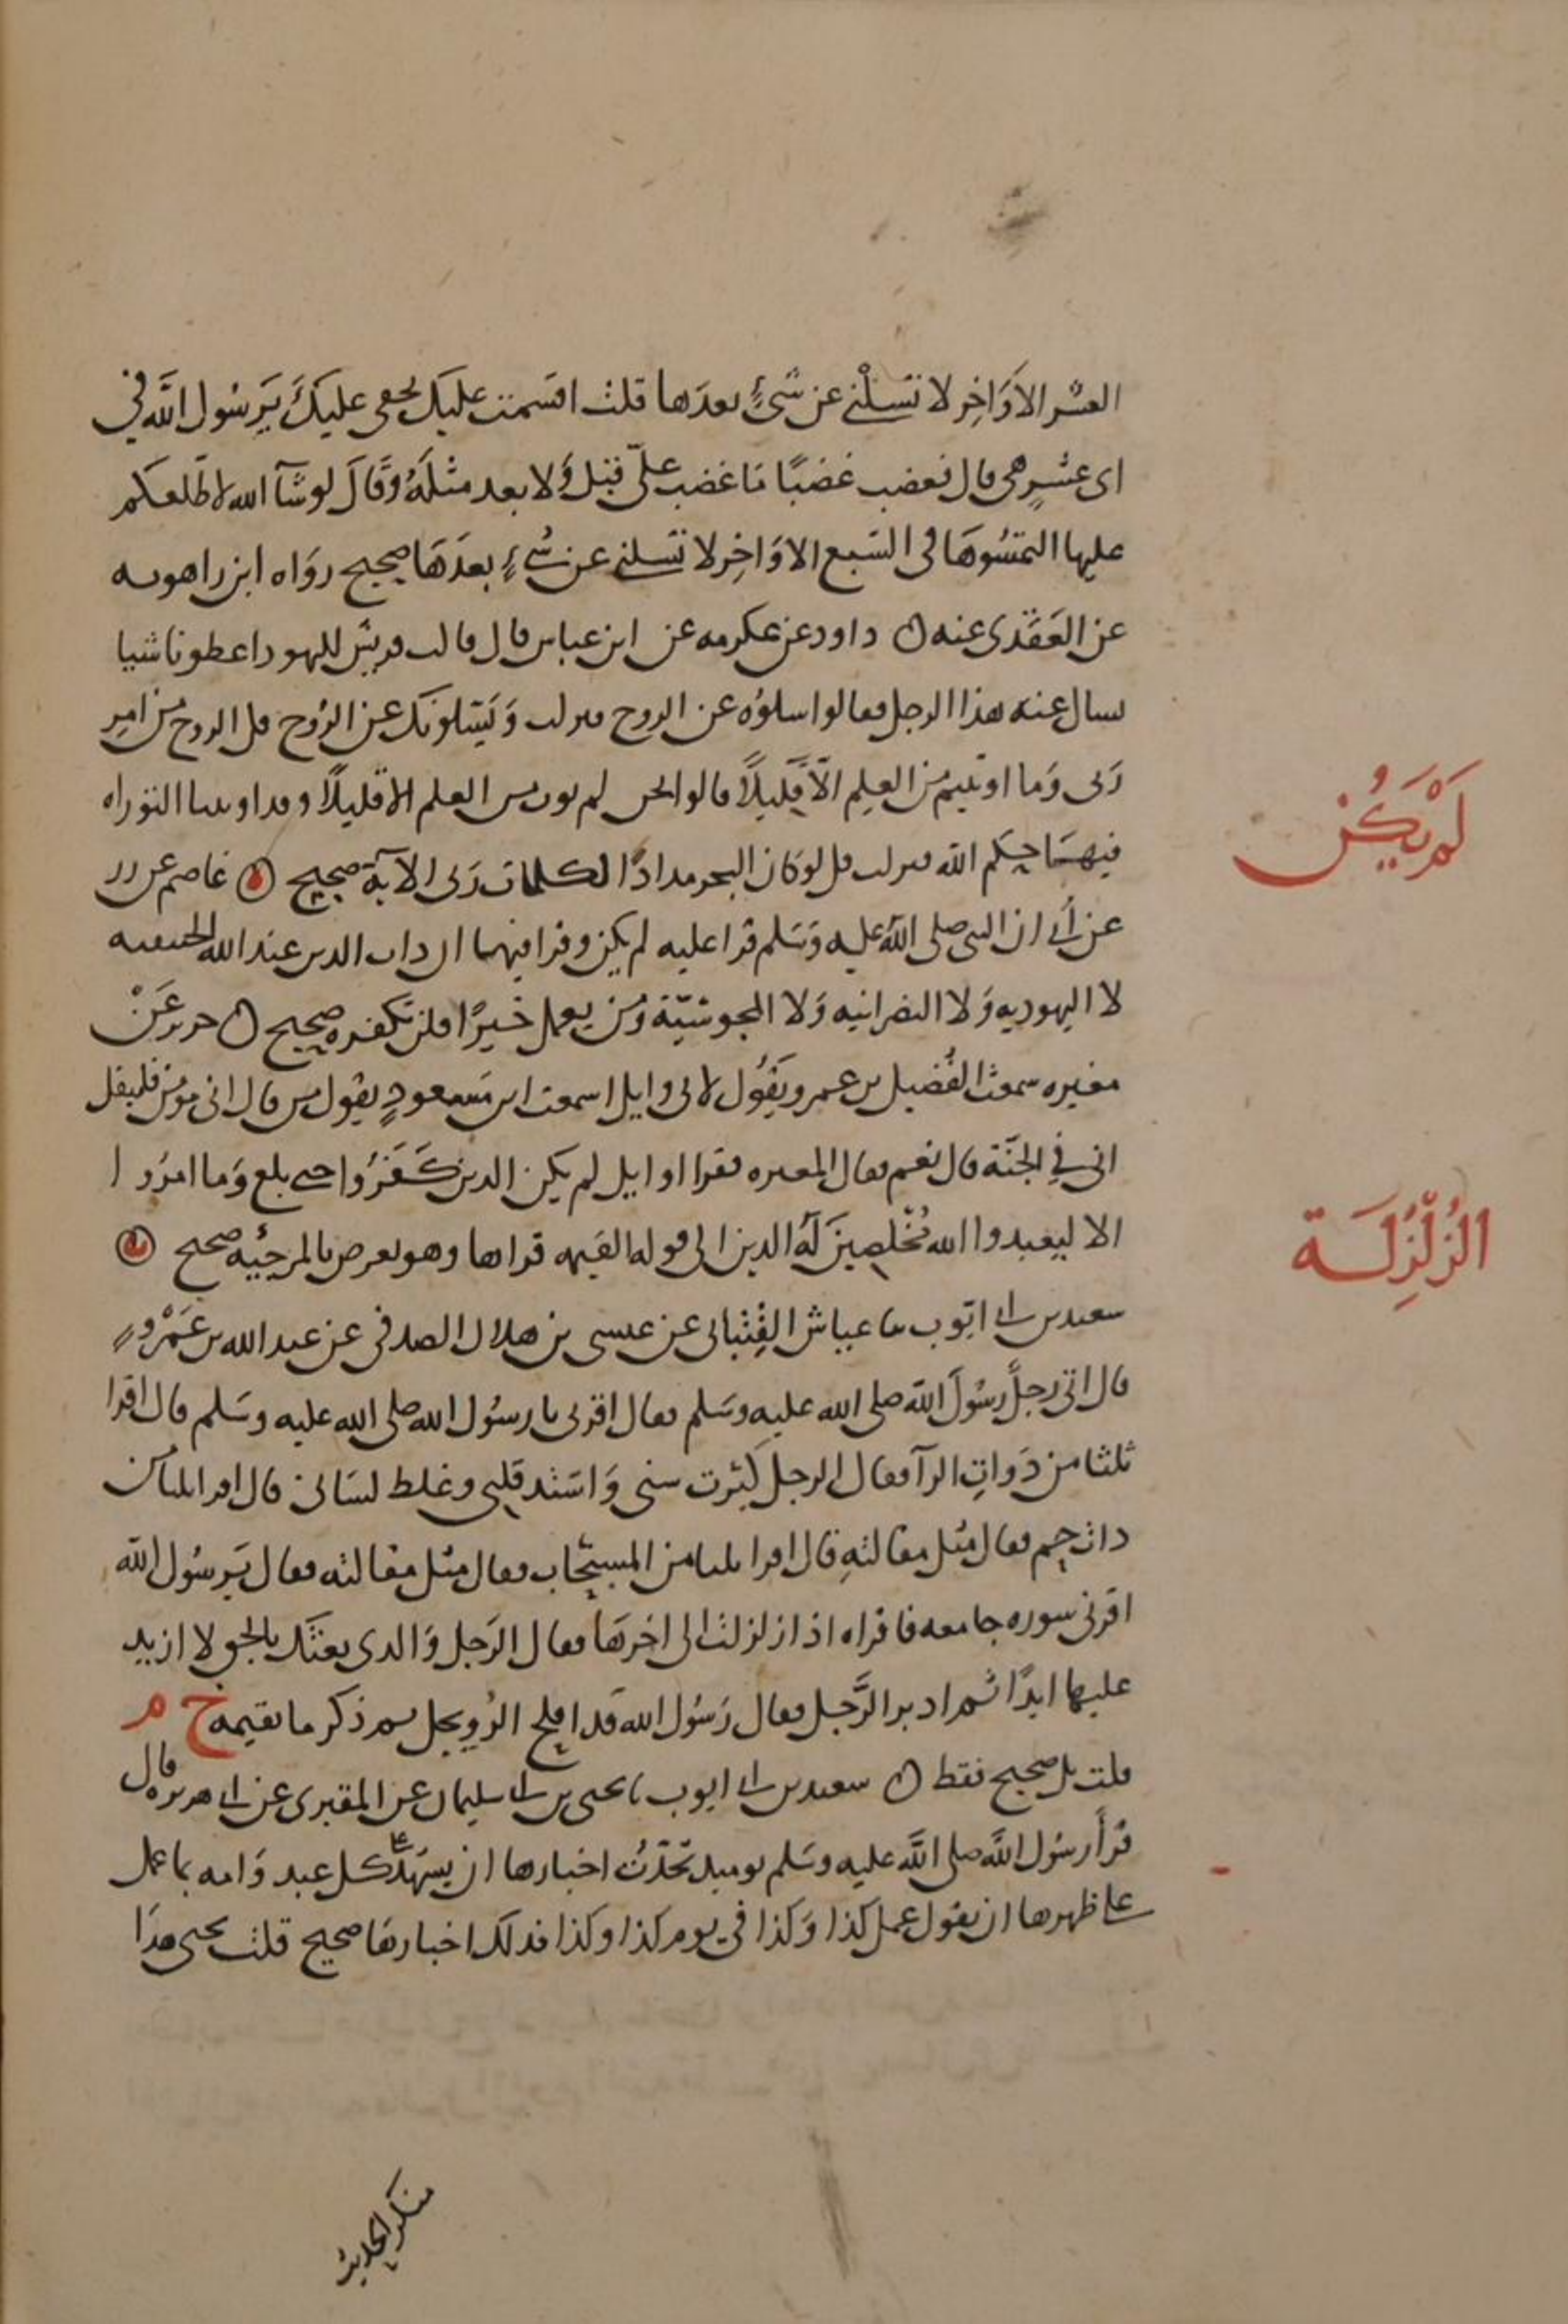 العشر الاَوَاخِر لا تسلْني عن شئٍ بعدَها قلت اقسَمت عليك بحقي عليكَ يَرسُول اللَّه في
اى عشرٍ هى قال فغضب غضبًا مَا غضب علىّ قبل وَلا بعد مثلَهُ وَقالَ لو شآ الله لاطلعكم
عليها التمسُوهَا فى السَبع الاوَاخِر لا تَسلنى عن شئٍ بعدَهَا صحيح روَاه ابن راهويه
عن العَقَدى عنه ن داود عن عكرمه عن ابن عباس قال قالت قريش لليهود اعطونا شيا
نسال عنه هذا الرجل فقالوا سلوُه عن الروح فنزلت وَيَسَلونك عن الرُوح قل الروح من امرِ
رَبى وَما اوتيتم من العِلم الّا قَليلًا قالوا نحن لم نوت من العلم الا قليلًا وقد اوتينا التوراه
فيهَا حكم الله فنزلت قل لو كان البحر مدادًا لكلمات رَبى الآية صحيح ن عاصم عن زر
عن أُبى ان النبى صلى اللّه عليه وَسَلم قرا عليه لم يكن وقرا فيها ان ذات الدين عند الله الحنيفيه
لا اليهوديه وَلا النصرانيه وَلا المجوسيّة وَمن يعمل خيرًا فلن تكفره صحيح ن جرير عَنْ
مغيره سمعت الفُضيل بن عمرو يقُول لابى وايل اسمعت ابن مَسعودٍ يقول من قال انى مومن فليقل
انى في الجنّة قال نعم فقال المغيره فقرا ابو وايل لم يكن الدين كَفَرُوا حتى بلغ وَما امرُوا
الا ليعبدوا الله مُخْلصينَ لَهُ الدين الى قوله القيمه قراها وهو يعرض بالمرجئه صحيح ن
لَمْ يَكُنْ
الزَّلْزَلَة
سعيد بن ابى ايّوب ثنا عياش القِتْبانى عن عيسى بن هلال الصدفى عن عبد الله بن عَمْروٍ
قال اتى رجلٌ رسُولَ اللّه صلى الله عليه وسَلم فقال اقرنى يا رسُول الله صلى الله عليه وسَلم قال اقرا
ثلثا من ذَواتِ الرآ فقال الرجل كَبُرت سنى وَاشتد قلبى وغلظ لسَانى قال اقرا ثلثا من
ذات حم فقال مثل مقالتهِ قال اقرا ثلثا من المسبّحات فقال مثل مقالته فقال يَرسُول اللّه
اقرنى سوره جامعه فاقراه اذا زلزلت الى اخرهَا فقال الرَجل وَالدى بعثَك بالحق لا ازيد
عليها ابدًا ثم ادبر الرَّجل فقال رَسُول الله قَد افلح الرُويجل ثم ذكر ما بقيمه خ م
قلت بل صحيح فقط ن سعيد بن ابى ايوب ثنا يحيى بن ابى سليمان عن المقبرى عن ابى هريره قال
قرأ رسُول اللَّه صلى اللَّه عليه وسَلم يوميذ تحَدّثُ اخبارها ان يشهَد على كل عبد وَامه بما عمل
على ظهرها ان يقول عمل كذا وَكذا في يوم كذا وكذا فذلك اخبارهَا صحيح قلت يحيى هدَا
منكر الحديث